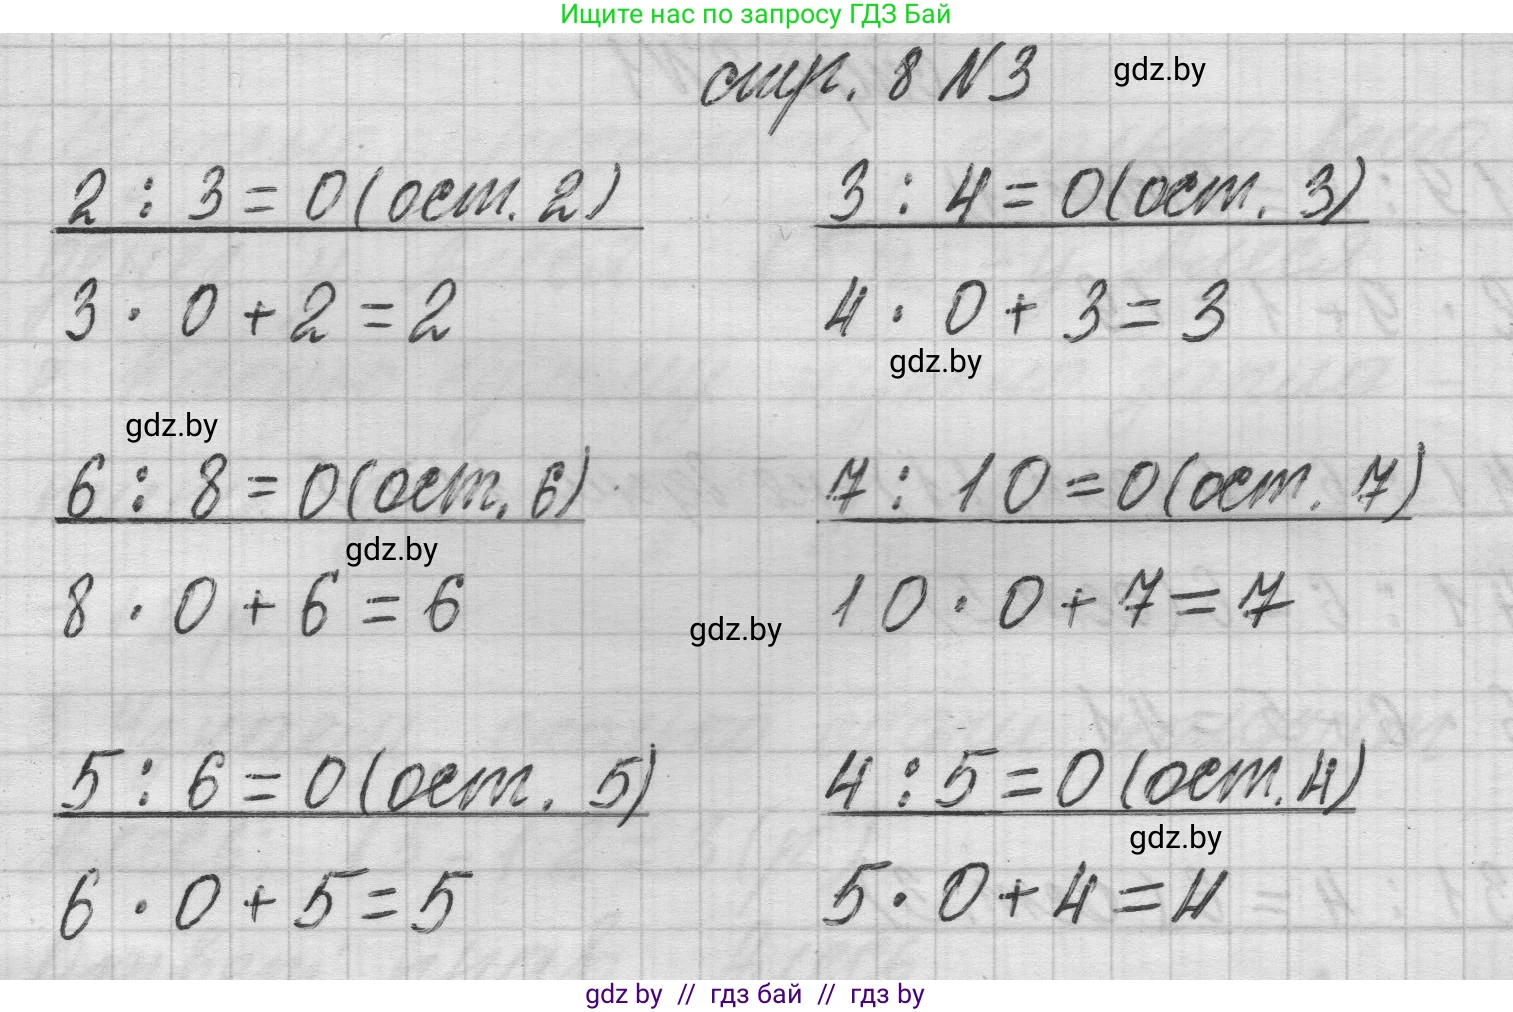 Ищите нас по запросу ГДЗ Бай
стр. 8 №3
gdz.by
2 : 3 = 0 (ост. 2)
3 : 4 = 0 (ост. 3)
3 · 0 + 2 = 2
4 · 0 + 3 = 3
gdz.by
gdz.by
6 : 8 = 0 (ост. 6)
7 : 10 = 0 (ост. 7)
gdz.by
8 · 0 + 6 = 6
10 · 0 + 7 = 7
gdz.by
5 : 6 = 0 (ост. 5)
4 : 5 = 0 (ост. 4)
gdz.by
6 · 0 + 5 = 5
5 · 0 + 4 = 4
gdz by // гдз бай // гдз by